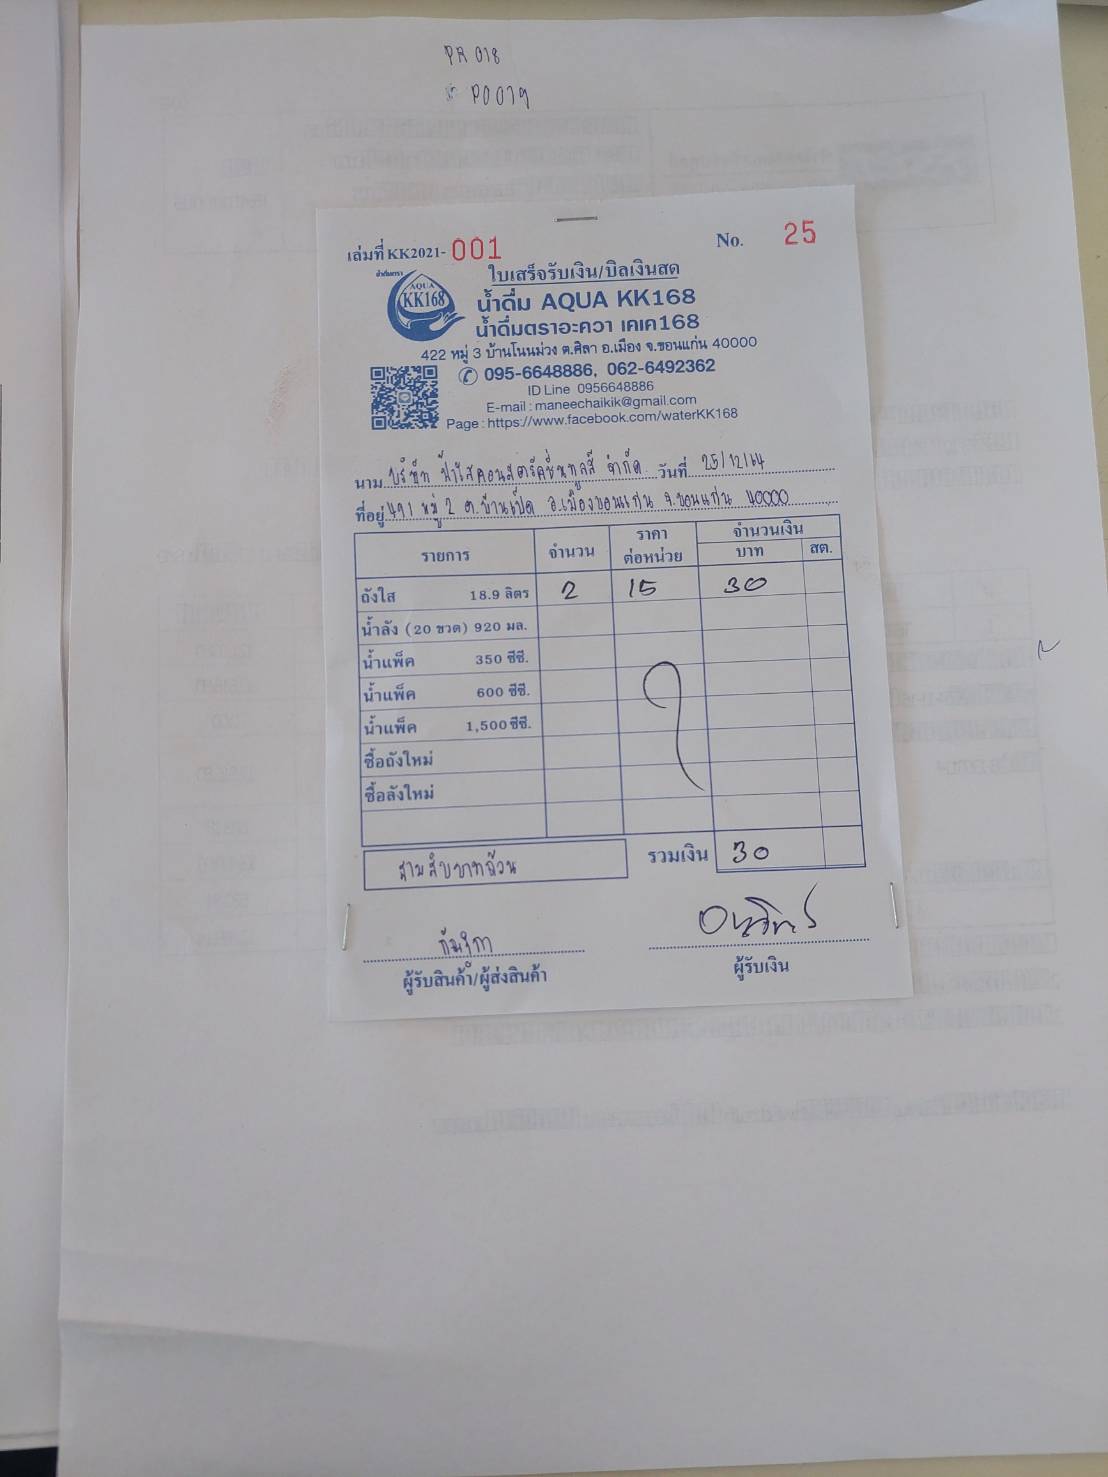 PR 018
PO 019
เล่มที่ KK2021- 001
No. 25
ใบเสร็จรับเงิน/บิลเงินสด
น้ำดื่มตรา
AQUA
KK168
น้ำดื่ม AQUA KK168
น้ำดื่มตราอะควา เคเค168
422 หมู่ 3 บ้านโนนม่วง ต.ศิลา อ.เมือง จ.ขอนแก่น 40000
095-6648886, 062-6492362
ID Line 0956648886
E-mail : maneechaikik@gmail.com
Page : https://www.facebook.com/waterKK168
นาม บริษัท ฟ้าใสคอนสตรัคชั่นทูลส์ จำกัด วันที่ 25/12/64
ที่อยู่ 491 หมู่ 2 ต.บ้านเป็ด อ.เมืองขอนแก่น จ.ขอนแก่น 40000
รายการ จำนวน ราคาต่อหน่วย จำนวนเงิน
บาท สต.
ถังใส 18.9 ลิตร 2 15 30
น้ำลัง (20 ขวด) 920 มล.
น้ำแพ็ค 350 ซีซี.
น้ำแพ็ค 600 ซีซี.
น้ำแพ็ค 1,500 ซีซี.
ซื้อถังใหม่
ซื้อลังใหม่
สามสิบบาทถ้วน รวมเงิน 30
ผู้รับสินค้า/ผู้ส่งสินค้า
ผู้รับเงิน